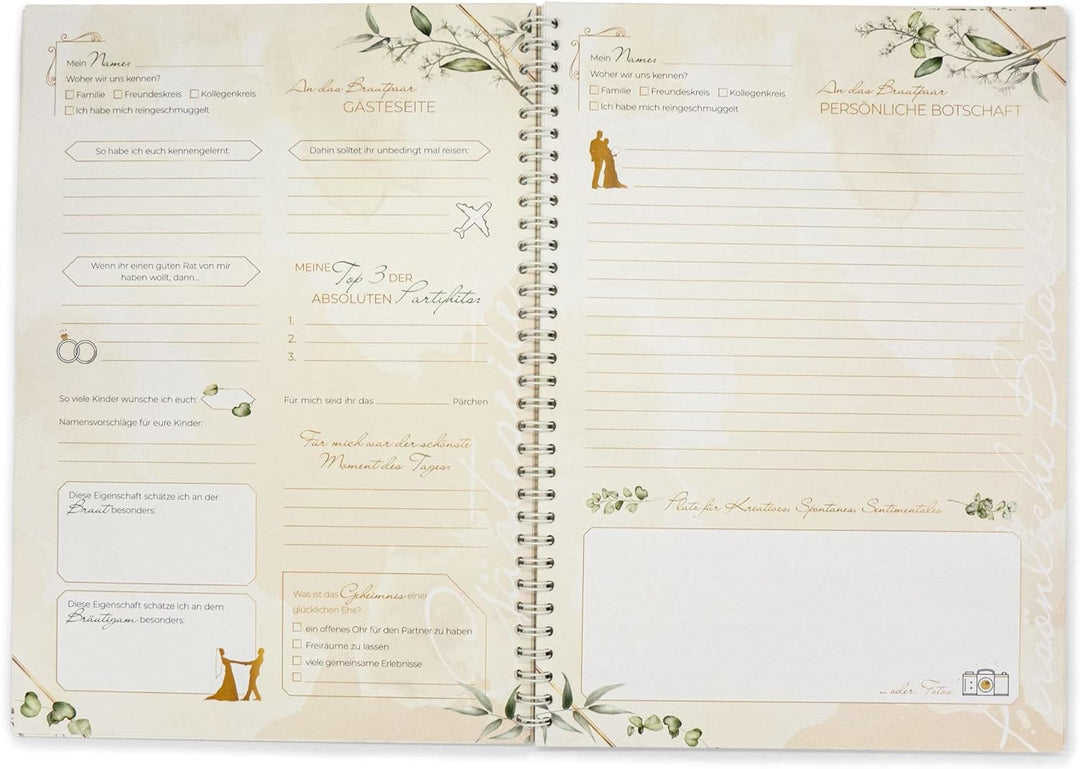 Mein Name:
Woher wir uns kennen?
Familie Freundeskreis Kollegenkreis
Ich habe mich reingeschmuggelt
An das Brautpaar
GÄSTESEITE
So habe ich euch kennengelernt:
Wenn ihr einen guten Rat von mir
haben wollt, dann...
So viele Kinder wünsche ich euch:
Namensvorschläge für eure Kinder:
Diese Eigenschaft schätze ich an der
Braut besonders:
Diese Eigenschaft schätze ich an dem
Bräutigam besonders:
Dahin solltet ihr unbedingt mal reisen:
MEINE Top 3 DER
ABSOLUTEN Partyhits:
1.
2.
3.
Für mich seid ihr das Pärchen
Für mich war der schönste
Moment des Tages:
Was ist das Geheimnis einer
glücklichen Ehe?
ein offenes Ohr für den Partner zu haben
Freiräume zu lassen
viele gemeinsame Erlebnisse
Gästeseite
Mein Name:
Woher wir uns kennen?
Familie Freundeskreis Kollegenkreis
Ich habe mich reingeschmuggelt
An das Brautpaar
PERSÖNLICHE BOTSCHAFT
Platz für Kreatives, Spontanes, Sentimentales
... oder Fotos
Persönliche Botschaft